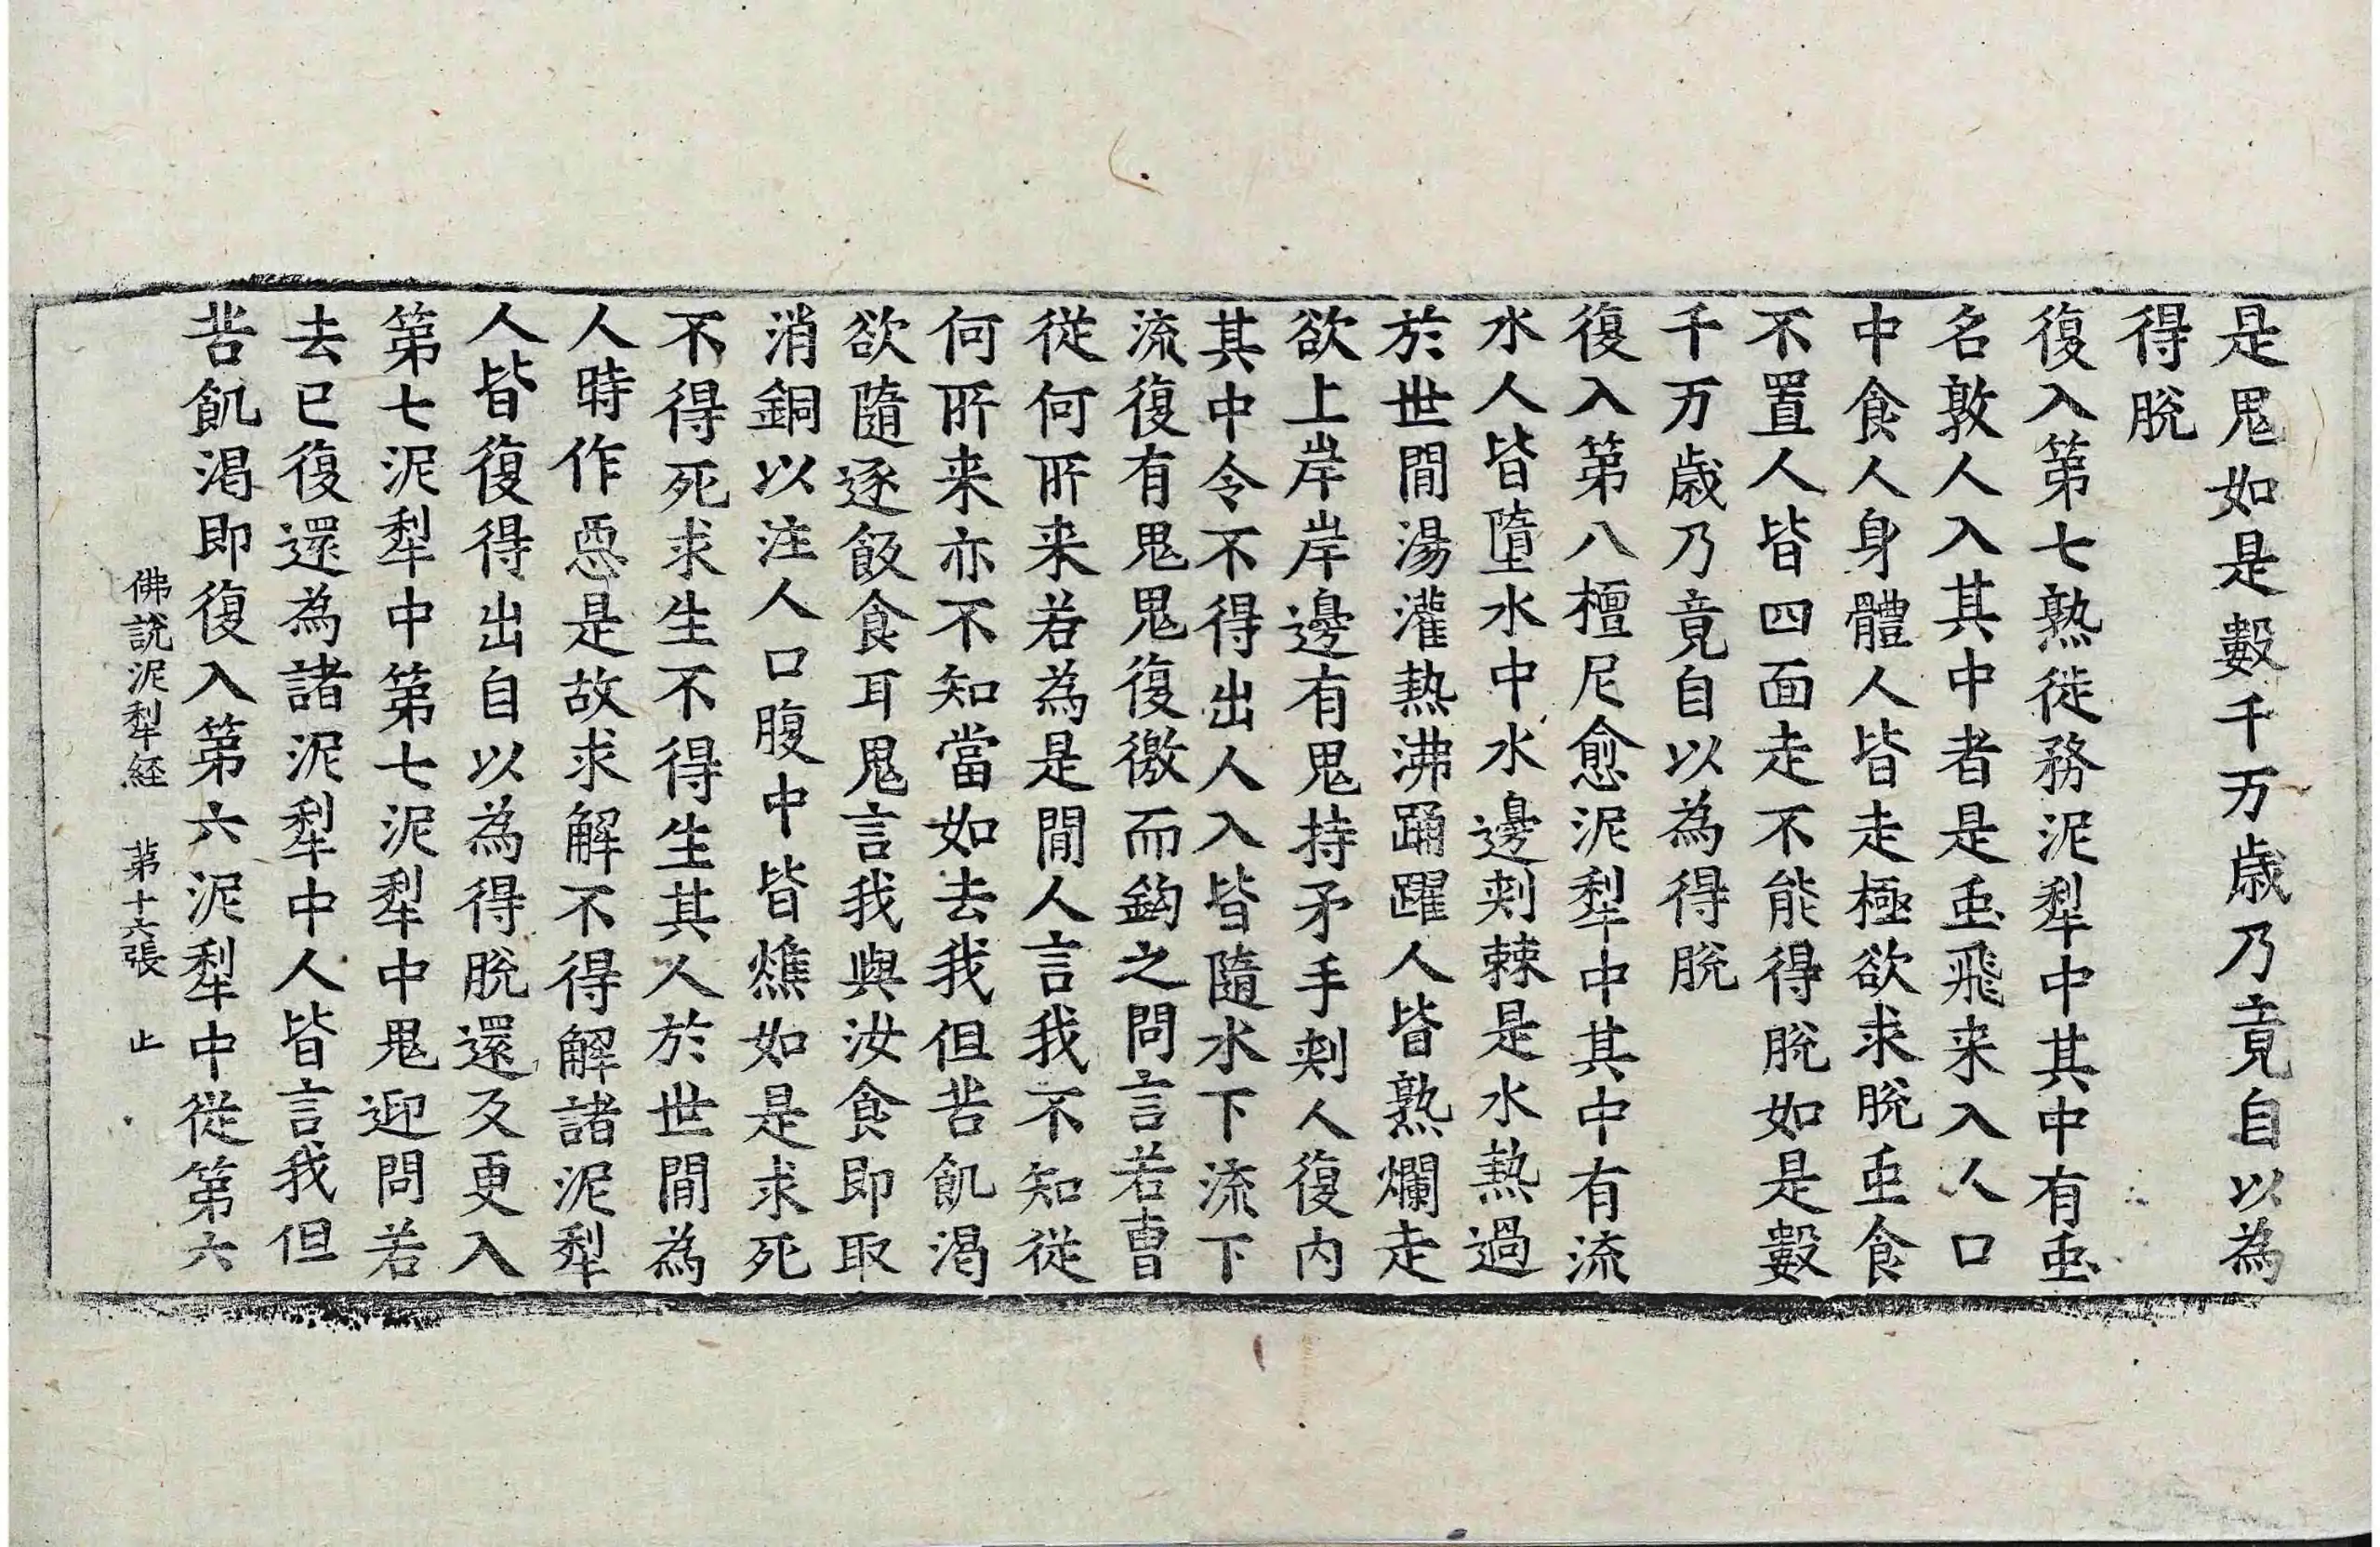 是鬼如是數千万歲乃竟自以為
得脫
復入第七熟徙務泥犁中其中有䖝
名敦人入其中者是䖝飛来入人口
中食人身體人皆走極欲求脫䖝食
不置人皆四面走不能得脫如是數
千万歲乃竟自以為得脫
復入第八檀尼愈泥犁中其中有流
水人皆墮水中水邊刾棘是水熱過
於世間湯灌熱沸踊躍人皆熟爛走
欲上岸岸邊有鬼持矛手刾人復內
其中令不得出人入皆隨水下流下
流復有鬼鬼復徼而鈎之問言若曺
從何所来若為是間人言我不知從
何所来亦不知當如去我但苦飢渴
欲隨逐飯食耳鬼言我與汝食即取
消銅以注人口腹中皆燋如是求死
不得死求生不得生其人於世間為
人時作惡是故求解不得解諸泥犁
人皆復得出自以為得脫還反更入
第七泥犁中第七泥犁中鬼迎問若
去已復還為諸泥犁中人皆言我但
苦飢渴即復入第六泥犁中從第六
佛說泥犁経 第十六張 止